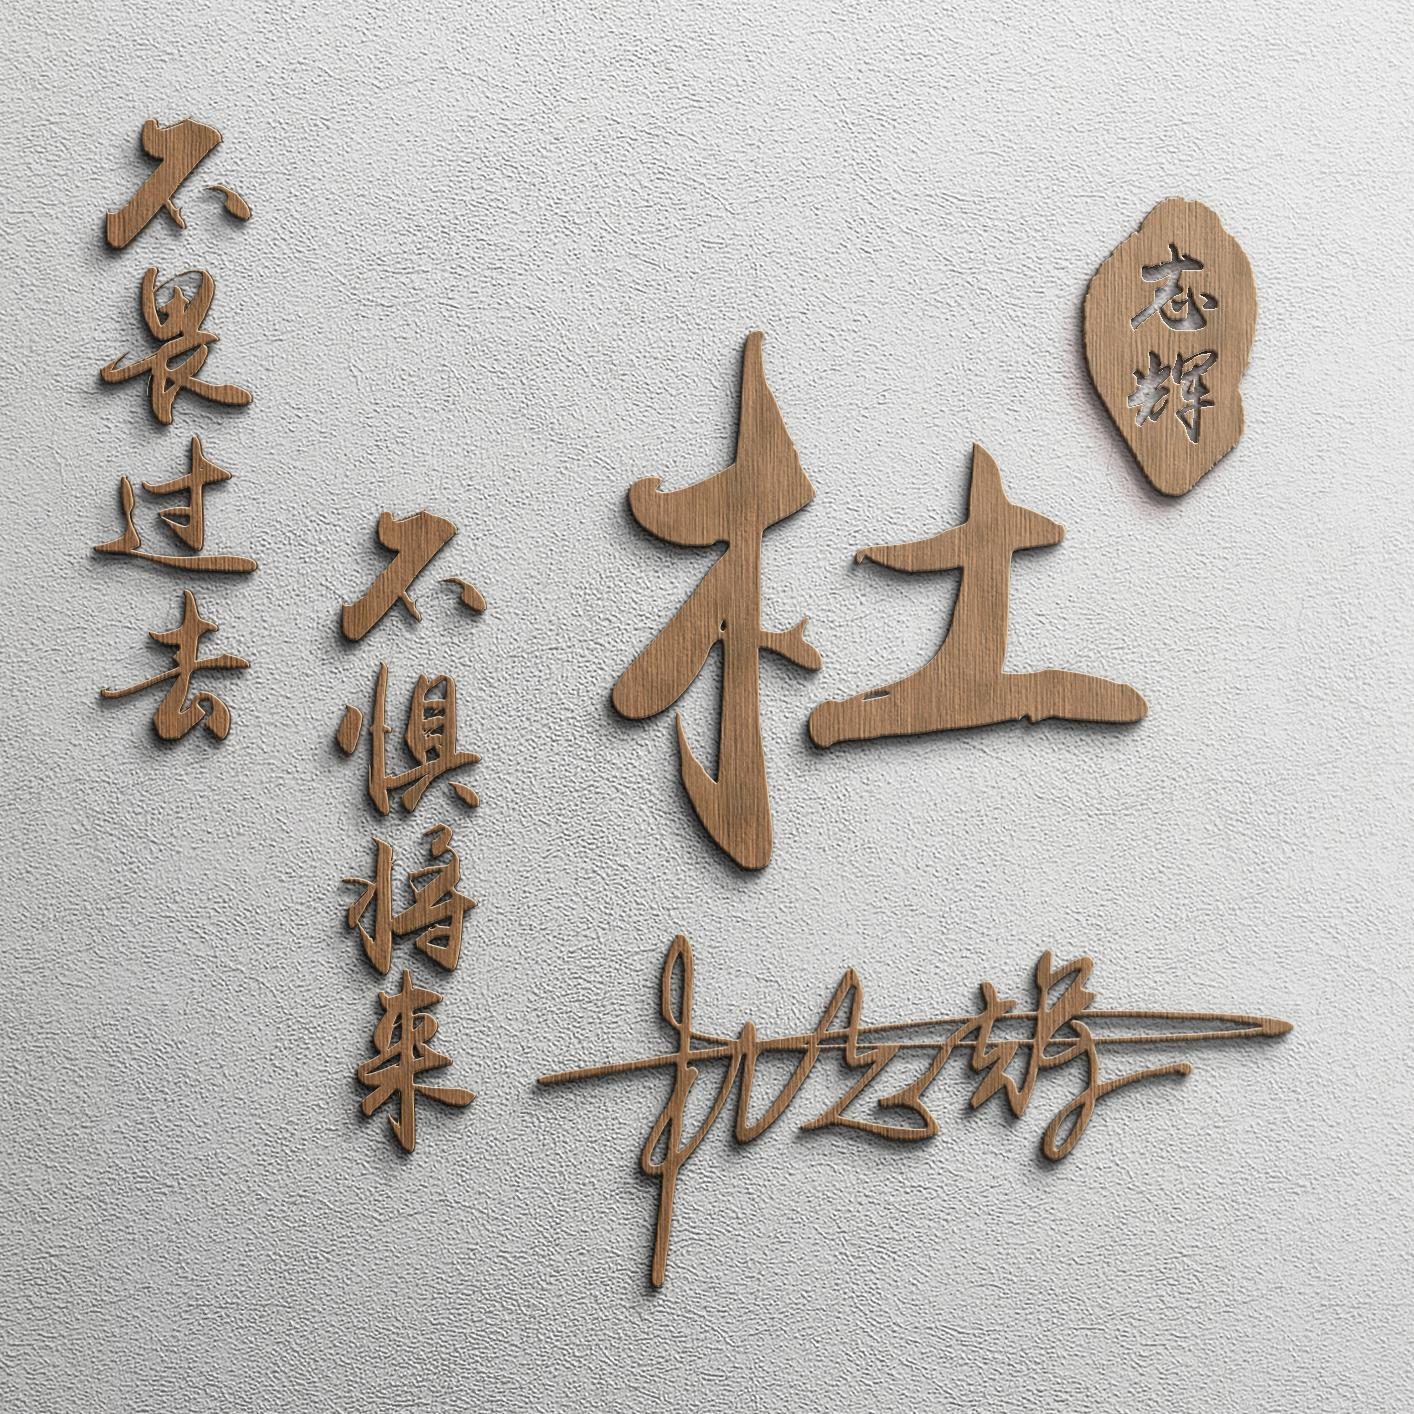 不畏过去
不惧将来
杜
志辉
杜志辉